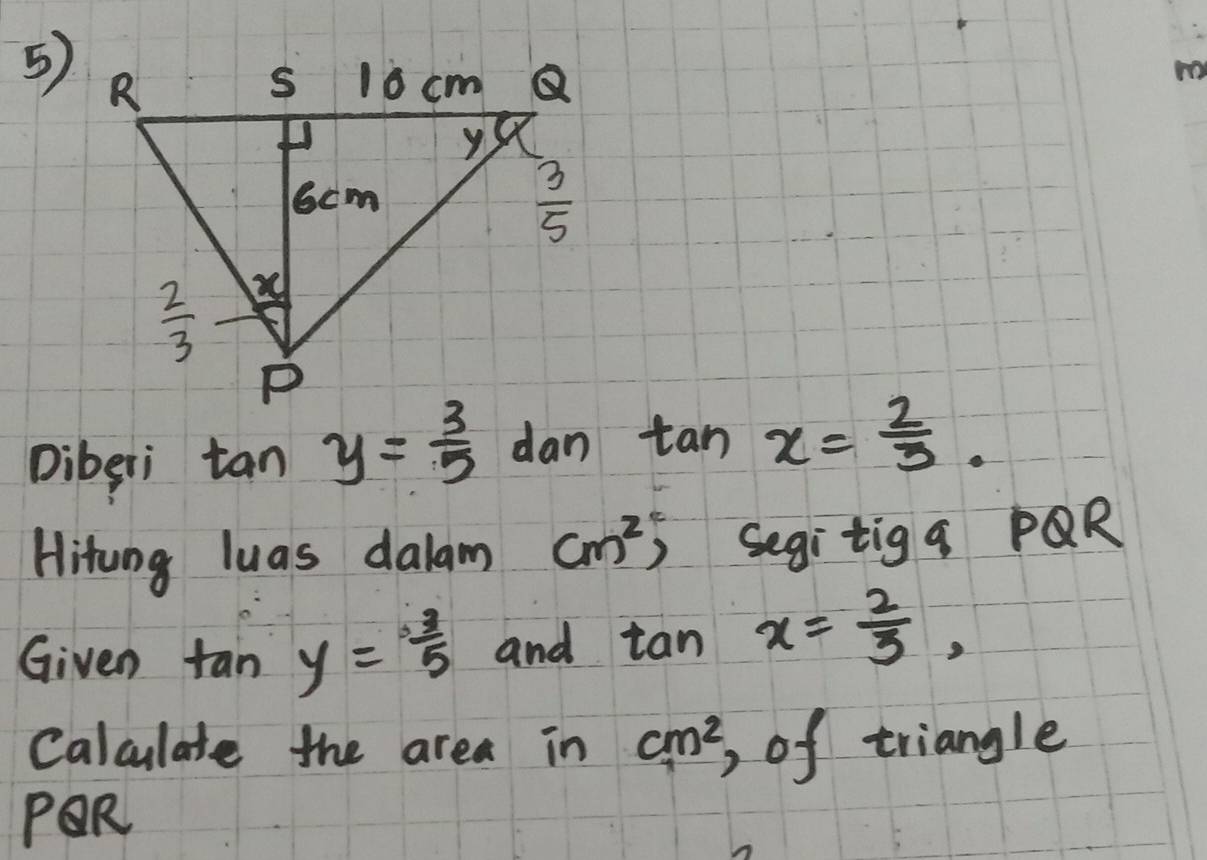 5)
R S 10 cm Q
y
6cm
3/5
x
2/3
P
Diberi tan y = 3/5 dan tan x = 2/3.
Hitung luas dalam cm², segitiga PQR
Given tan y = 3/5 and tan x = 2/3,
Calculate the area in cm², of triangle
PQR